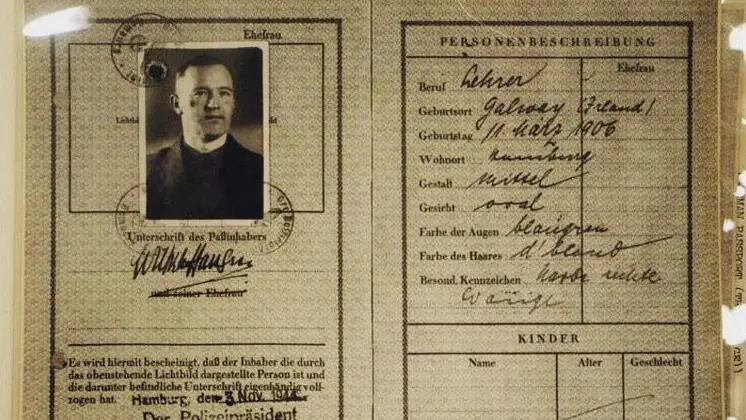 Ehefrau
Unterschrift des Paßinhabers
Wilhelm Hansen
und seiner Ehefrau
Es wird hiermit bescheinigt, daß der Inhaber die durch
das obenstehende Lichtbild dargestellte Person ist und
die darunter befindliche Unterschrift eigenhändig voll-
zogen hat. Hamburg, den 3. Nov. 194
Der Polizeipräsident
PERSONENBESCHREIBUNG
Ehefrau
Beruf Lehrer
Geburtsort Galway (Irland)
Geburtstag 11. März 1906
Wohnort Hamburg
Gestalt mittel
Gesicht oval
Farbe der Augen blaugrau
Farbe des Haares d'blond
Besond. Kennzeichen Narbe rechte
Wange
KINDER
Name Alter Geschlecht
MAN PASSPORT